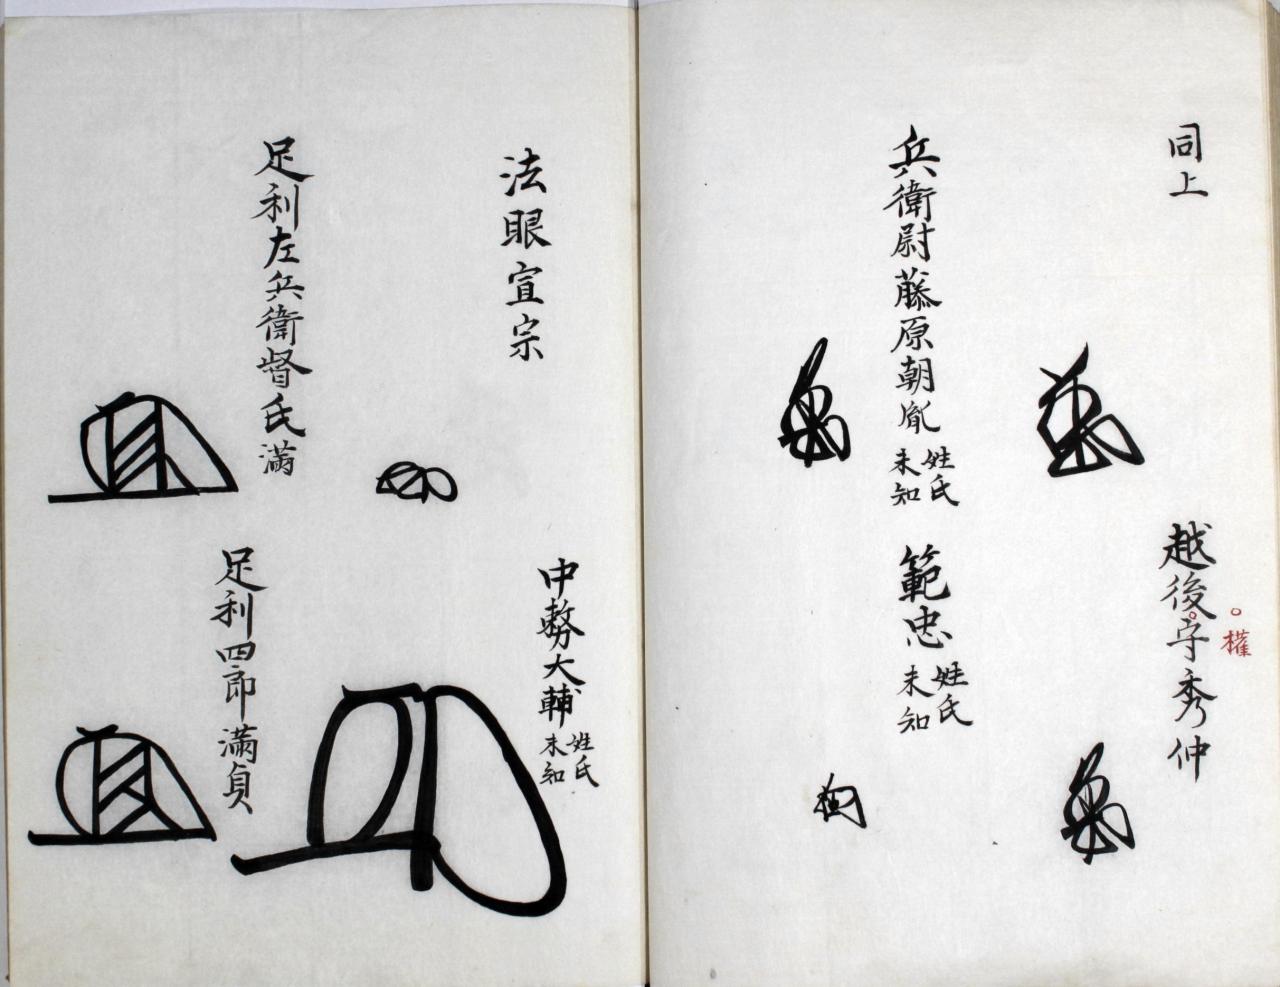 同上
越後守秀仲
權
兵衛尉藤原朝胤
姓氏
未知
範忠
姓氏
未知
法眼宣宗
中務大輔
姓氏
未知
足利左兵衛督氏滿
足利四郎滿貞